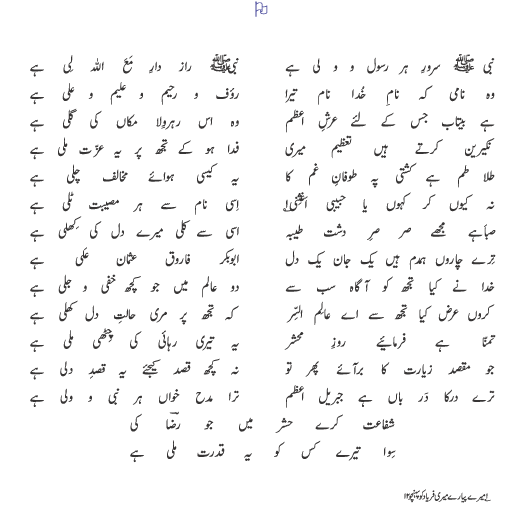 نبی ﷺ سرورِ ہر رسول و و لی ہے نبی ﷺ راز دارِ مَعَ اللہ لِی ہے
وہ نامی کہ نامِ خُدا نام تیرا رؤف و رحیم و علیم و علی ہے
ہے بیتاب جس کے لئے عرشِ اعظم وہ اس رہروِلا مکاں کی گلی ہے
نکیرین کرتے ہیں تعظیم میری فدا ہو کے تجھ پر یہ عزت ملی ہے
طلا طم ہے کشتی پہ طوفانِ غم کا یہ کیسی ہوائے مخالف چلی ہے
نہ کیوں کر کہوں یا حبیبی اَغِثنی اِسی نام سے ہر مصیبت ٹلی ہے
صباہے مجھے صر صرِ دشت طیبہ اسی سے کلی میرے دل کی کِھلی ہے
تِرے چاروں ہمدم ہیں یک جان یک دل ابوبکر فاروق عثمان علی ہے
خدا نے کیا تجھ کو آ گاہ سب سے دو عالم میں جو کچھ خفی و جلی ہے
کروں عرض کیا تجھ سے اے عالِم السِّر کہ تجھ پر مری حالتِ دل کھلی ہے
تمنّا ہے فرمائیے روزِ محشر یہ تیری رہائی کی چٹھی ملی ہے
جو مقصد زیارت کا برآئے پھر تو نہ کچھ قصد کیجئے یہ قصدِ دلی ہے
ترے درکا دَر باں ہے جبریل اعظم ترا مدح خواں ہر نبی و ولی ہے
شفاعت کرے حشر میں جو رضؔا کی
سِوا تیرے کس کو یہ قدرت ملی ہے
۱؎ میرے پیارے میری فریاد کو پہنچو ۱۲